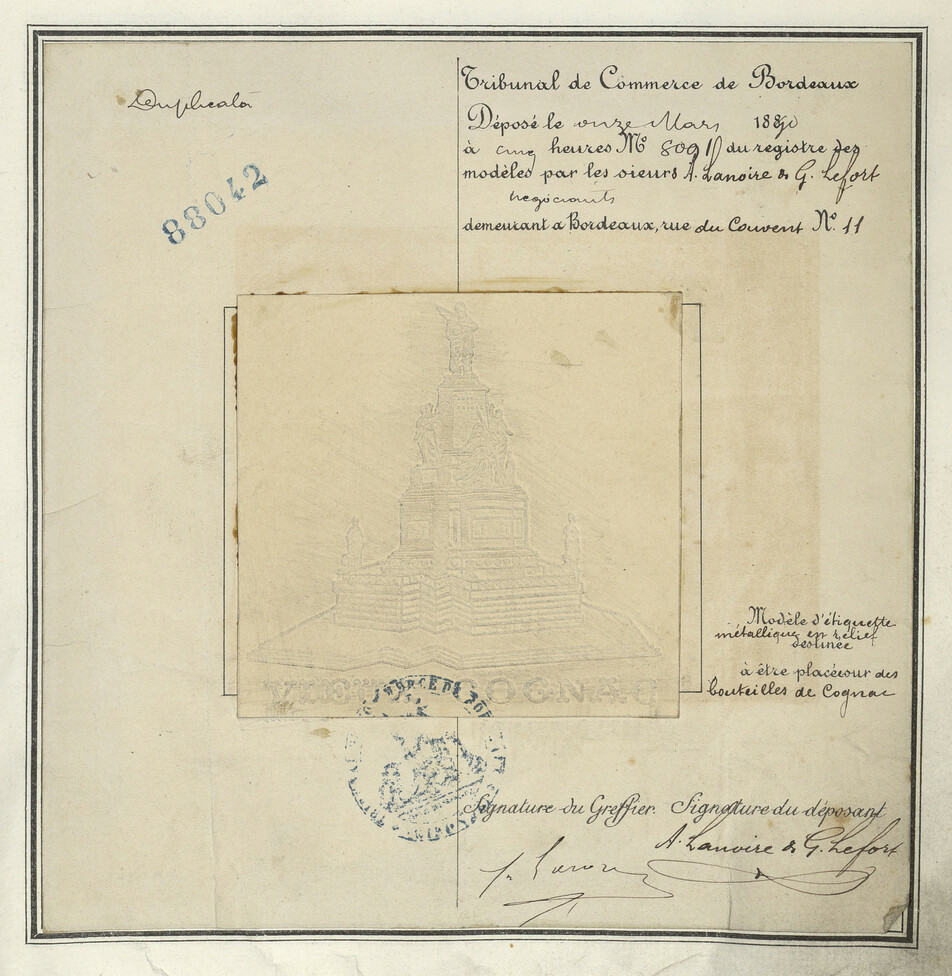 Duplicata
88042
Tribunal de Commerce de Bordeaux
Déposé le onze Mars 1890
à cinq heures No du registre des
modèles par les sieurs A. Lanoire & G. Lefort
négociants
demeurant a Bordeaux, rue du Couvent No. 11
VIEUX COGNAC
Modèle d'étiquette
métallique en relief
destinée
à être placée sur des
bouteilles de Cognac
COMMERCE DE BOR
Signature du Greffier. Signature du déposant
A. Lanoire & G. Lefort